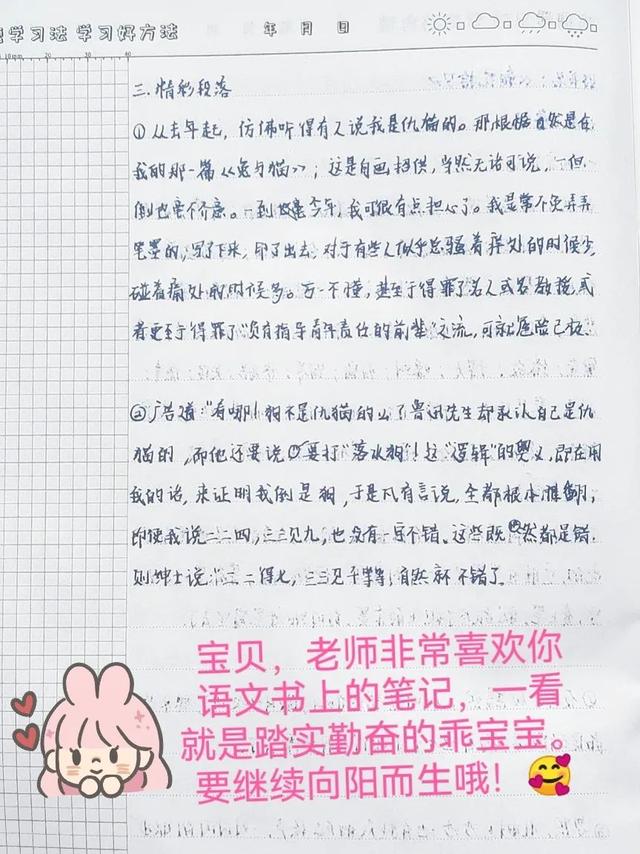 学习法 学习好方法 年 月 日
三.精彩段落
①从去年起,仿佛听得有人说我是仇猫的。那根据自然是在
我的那一篇《兔与猫》;这是自画招供,当然无话可说,一但
倒也毫不介意。一到今年,我可很有点担心了。我是常不免弄弄
笔墨的,写了下来,印了出去,对于有些人似乎总是搔着痒处的时候少,
碰着痛处的时候多。万一不谨,甚至于得罪了名人或名教授,或
者更至于得罪了"负有指导青年责任的前辈"之流,可就危险已极.
②广告道:"看哪!狗不是仇猫的么?鲁迅先生却承认自己是仇
猫的,而他还要说要打'落水狗'!"这"逻辑"的奥义,即在用
我的话,来证明我倒是狗,于是凡有言说,全都根本推翻,
即使我说二二得四,三三见九,也没有一字不错。这些既然都错,
则绅士说二二得七,三三见千等等,自然就不错了
宝贝,老师非常喜欢你
语文书上的笔记,一看
就是踏实勤奋的乖宝宝。
要继续向阳而生哦!🥰